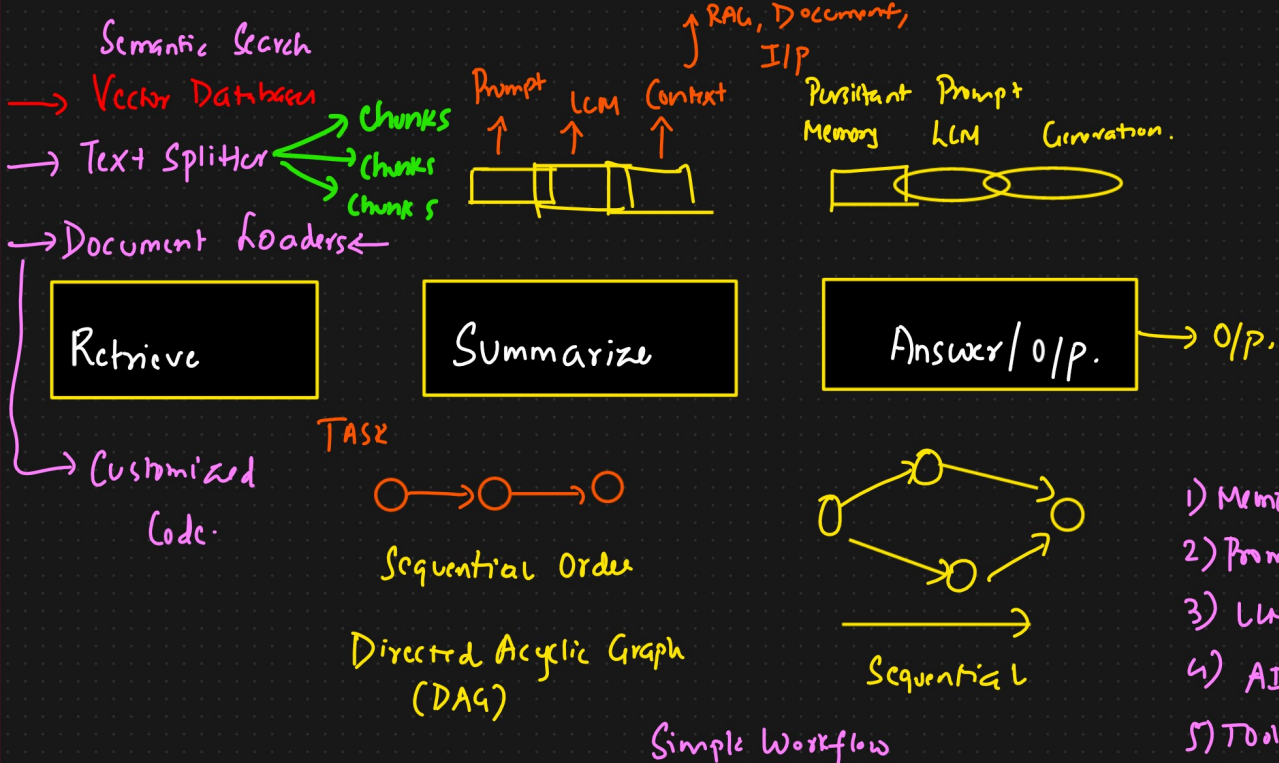 Semantic Search
Vector Databases
Text Splitter
Chunks
Chunks
Chunks
Document Loaders
RAG, Document,
I/P
Prompt LLM Context
Persistant Prompt
Memory LLM Generation.
Retrieve
Summarize
Answer/O/p.
O/p.
Customized
Code.
TASK
Sequential Order
Directed Acyclic Graph
(DAG)
Sequential
Simple Workflow
1) Mem
2) Prom
3) LLM
4) AI
5) Tool